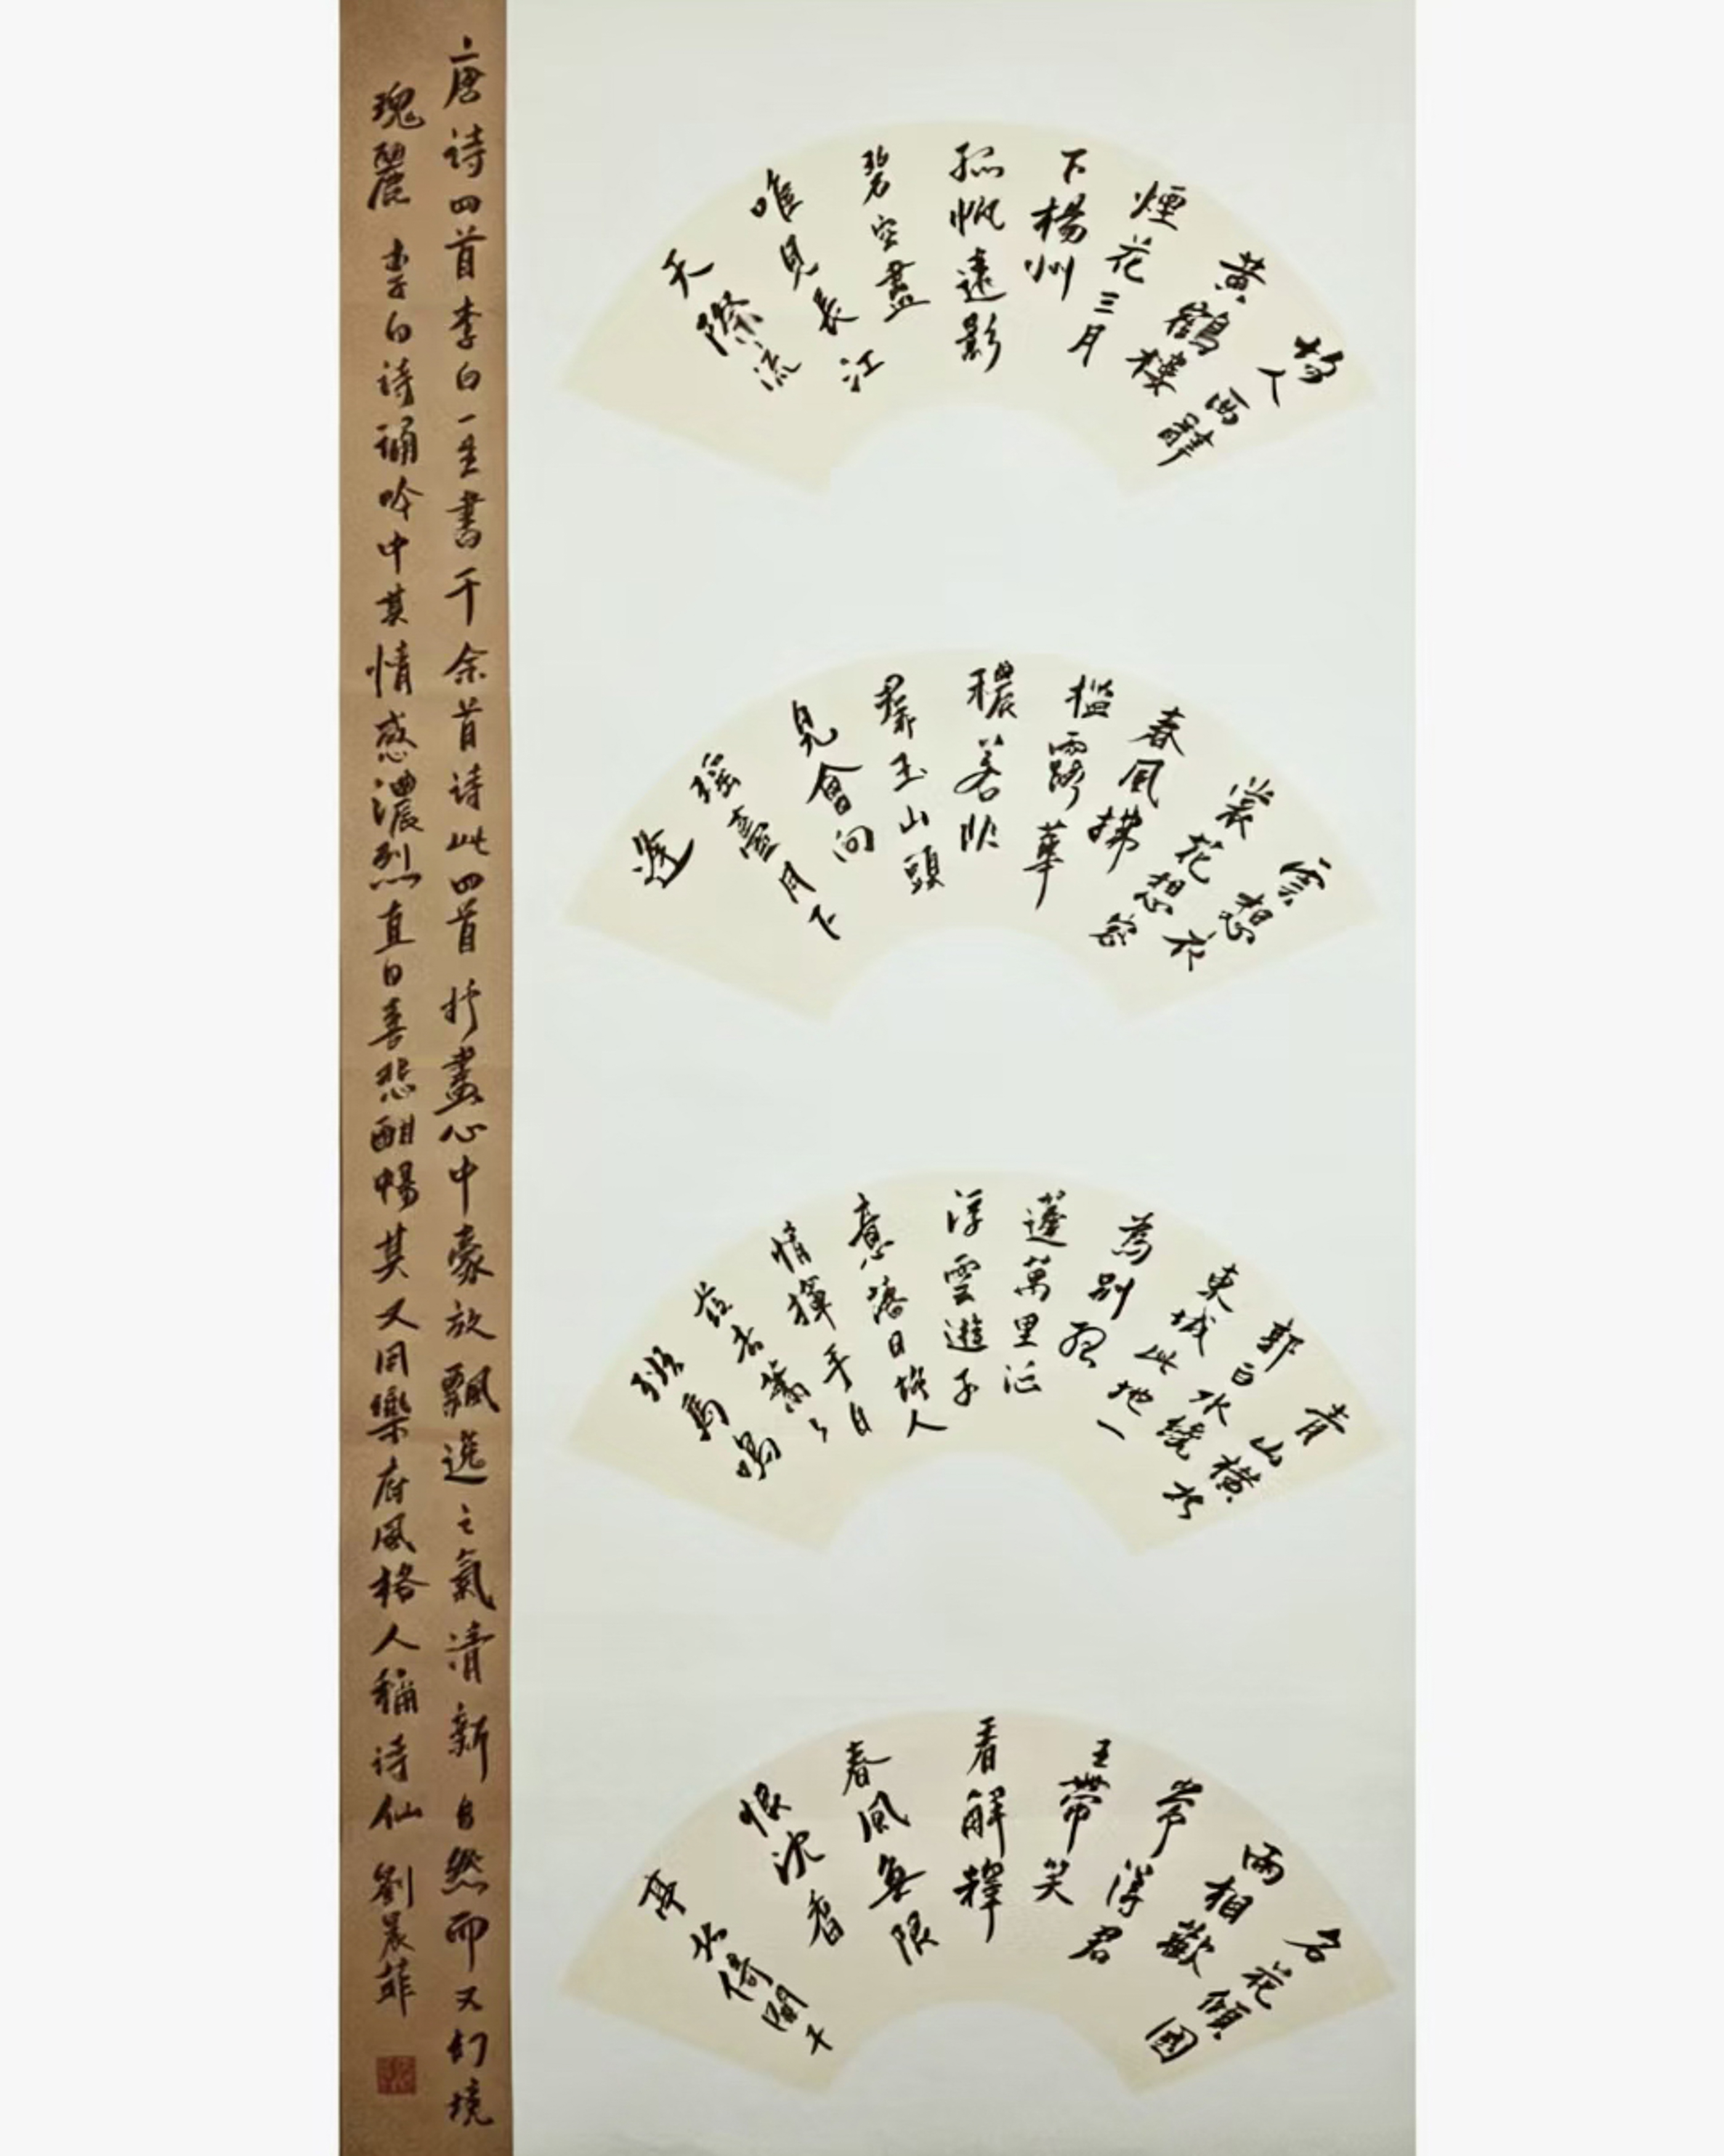 故人西辭
黃鶴樓
煙花三月
下楊州
孤帆遠影
碧空盡
唯見長江
天際流
雲想衣
裳花想容
春風拂
檻露華
穠若非
群玉山頭
見會向
瑤臺月下
逢
青山橫北
郭白水繞
東城此地一
為別孤
蓬萬里征
浮雲遊子
意落日故人
情揮手自
茲去蕭〻
班馬鳴
名花傾國
兩相歡
常得君
王帶笑
看解釋
春風無限
恨沈香
亭北倚闌干
唐诗四首李白一生書千余首诗此四首抒盡心中豪放飄逸之氣清新自然而又幻境
瑰麗李白诗誦吟中其情感濃烈直白喜悲酣暢其又同樂府風格人稱诗仙 劉晨菲